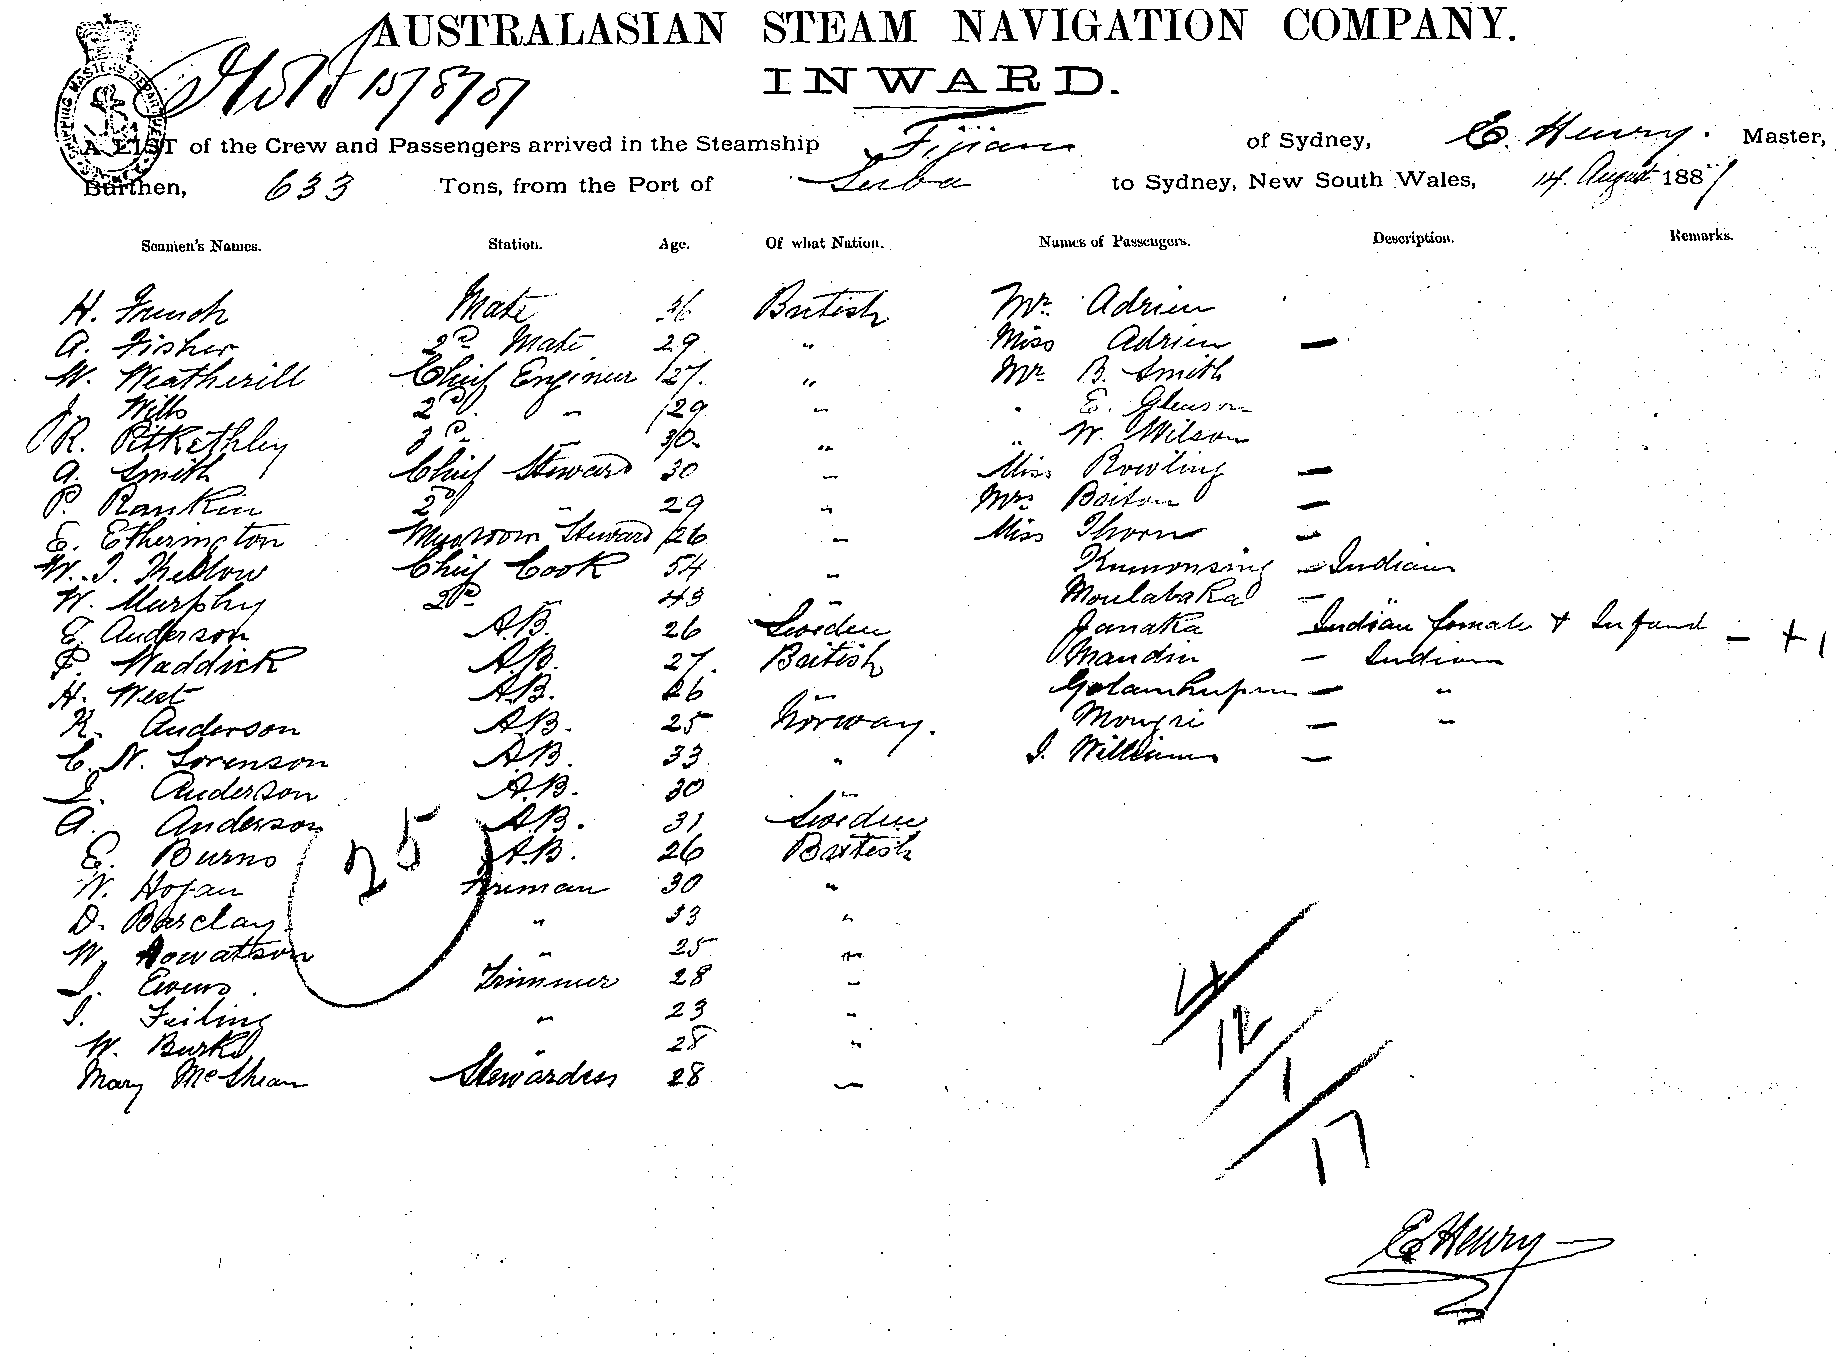 AUSTRALASIAN STEAM NAVIGATION COMPANY.
INWARD.
15/8/87
A LIST of the Crew and Passengers arrived in the Steamship Fijian of Sydney, E. Henry. Master,
Burthen, 633 Tons, from the Port of Suva to Sydney, New South Wales, 14. August 1887
Seamen's Names. Station. Age. Of what Nation. Names of Passengers. Description. Remarks.
H. French Mate 36 British Mr. Adrien
A. Fisher 2nd Mate 29 " Miss Adrien —
W. Weatherill Chief Engineer 27. " Mr. B. Smith
J. Wills 2nd. " 29 " " E. Gleeson
R. Pitkethley 3rd " 30. " " W. Wilson
A. Smith Chief Steward 30 " Miss Rowling —
P. Rankin 2nd " 29 " Mrs Boiton —
E. Etherington Messroom Steward 26 " Miss Thorn —
W. J. Thellow Chief Cook 54 " Kumonsing — Indian
W. Murphy 2nd " 43 " Moulabaka —
E. Anderson A.B. 26 Sweden Janaka Indian female + Infant — +1
P. Waddick A.B. 27. British Mandin — Indian
H. West A.B. 26 " —
K. Anderson A.B. 25 Norway. Mongri — "
C. N. Sorenson A.B. 33 " J. Williams —
J. Anderson A.B. 30 "
A. Anderson A.B. 31 Sweden
E. Burns A.B. 26 British
W. Hogan Fireman 30 "
D. Barclay " 33 "
W. Howatson " 25 "
J. Evens Trimmer 28 "
J. Feiling " 23 "
W. Burke " 28 "
Mary McShean Stewardess 28 "
25
4/12/1/17
E Henry